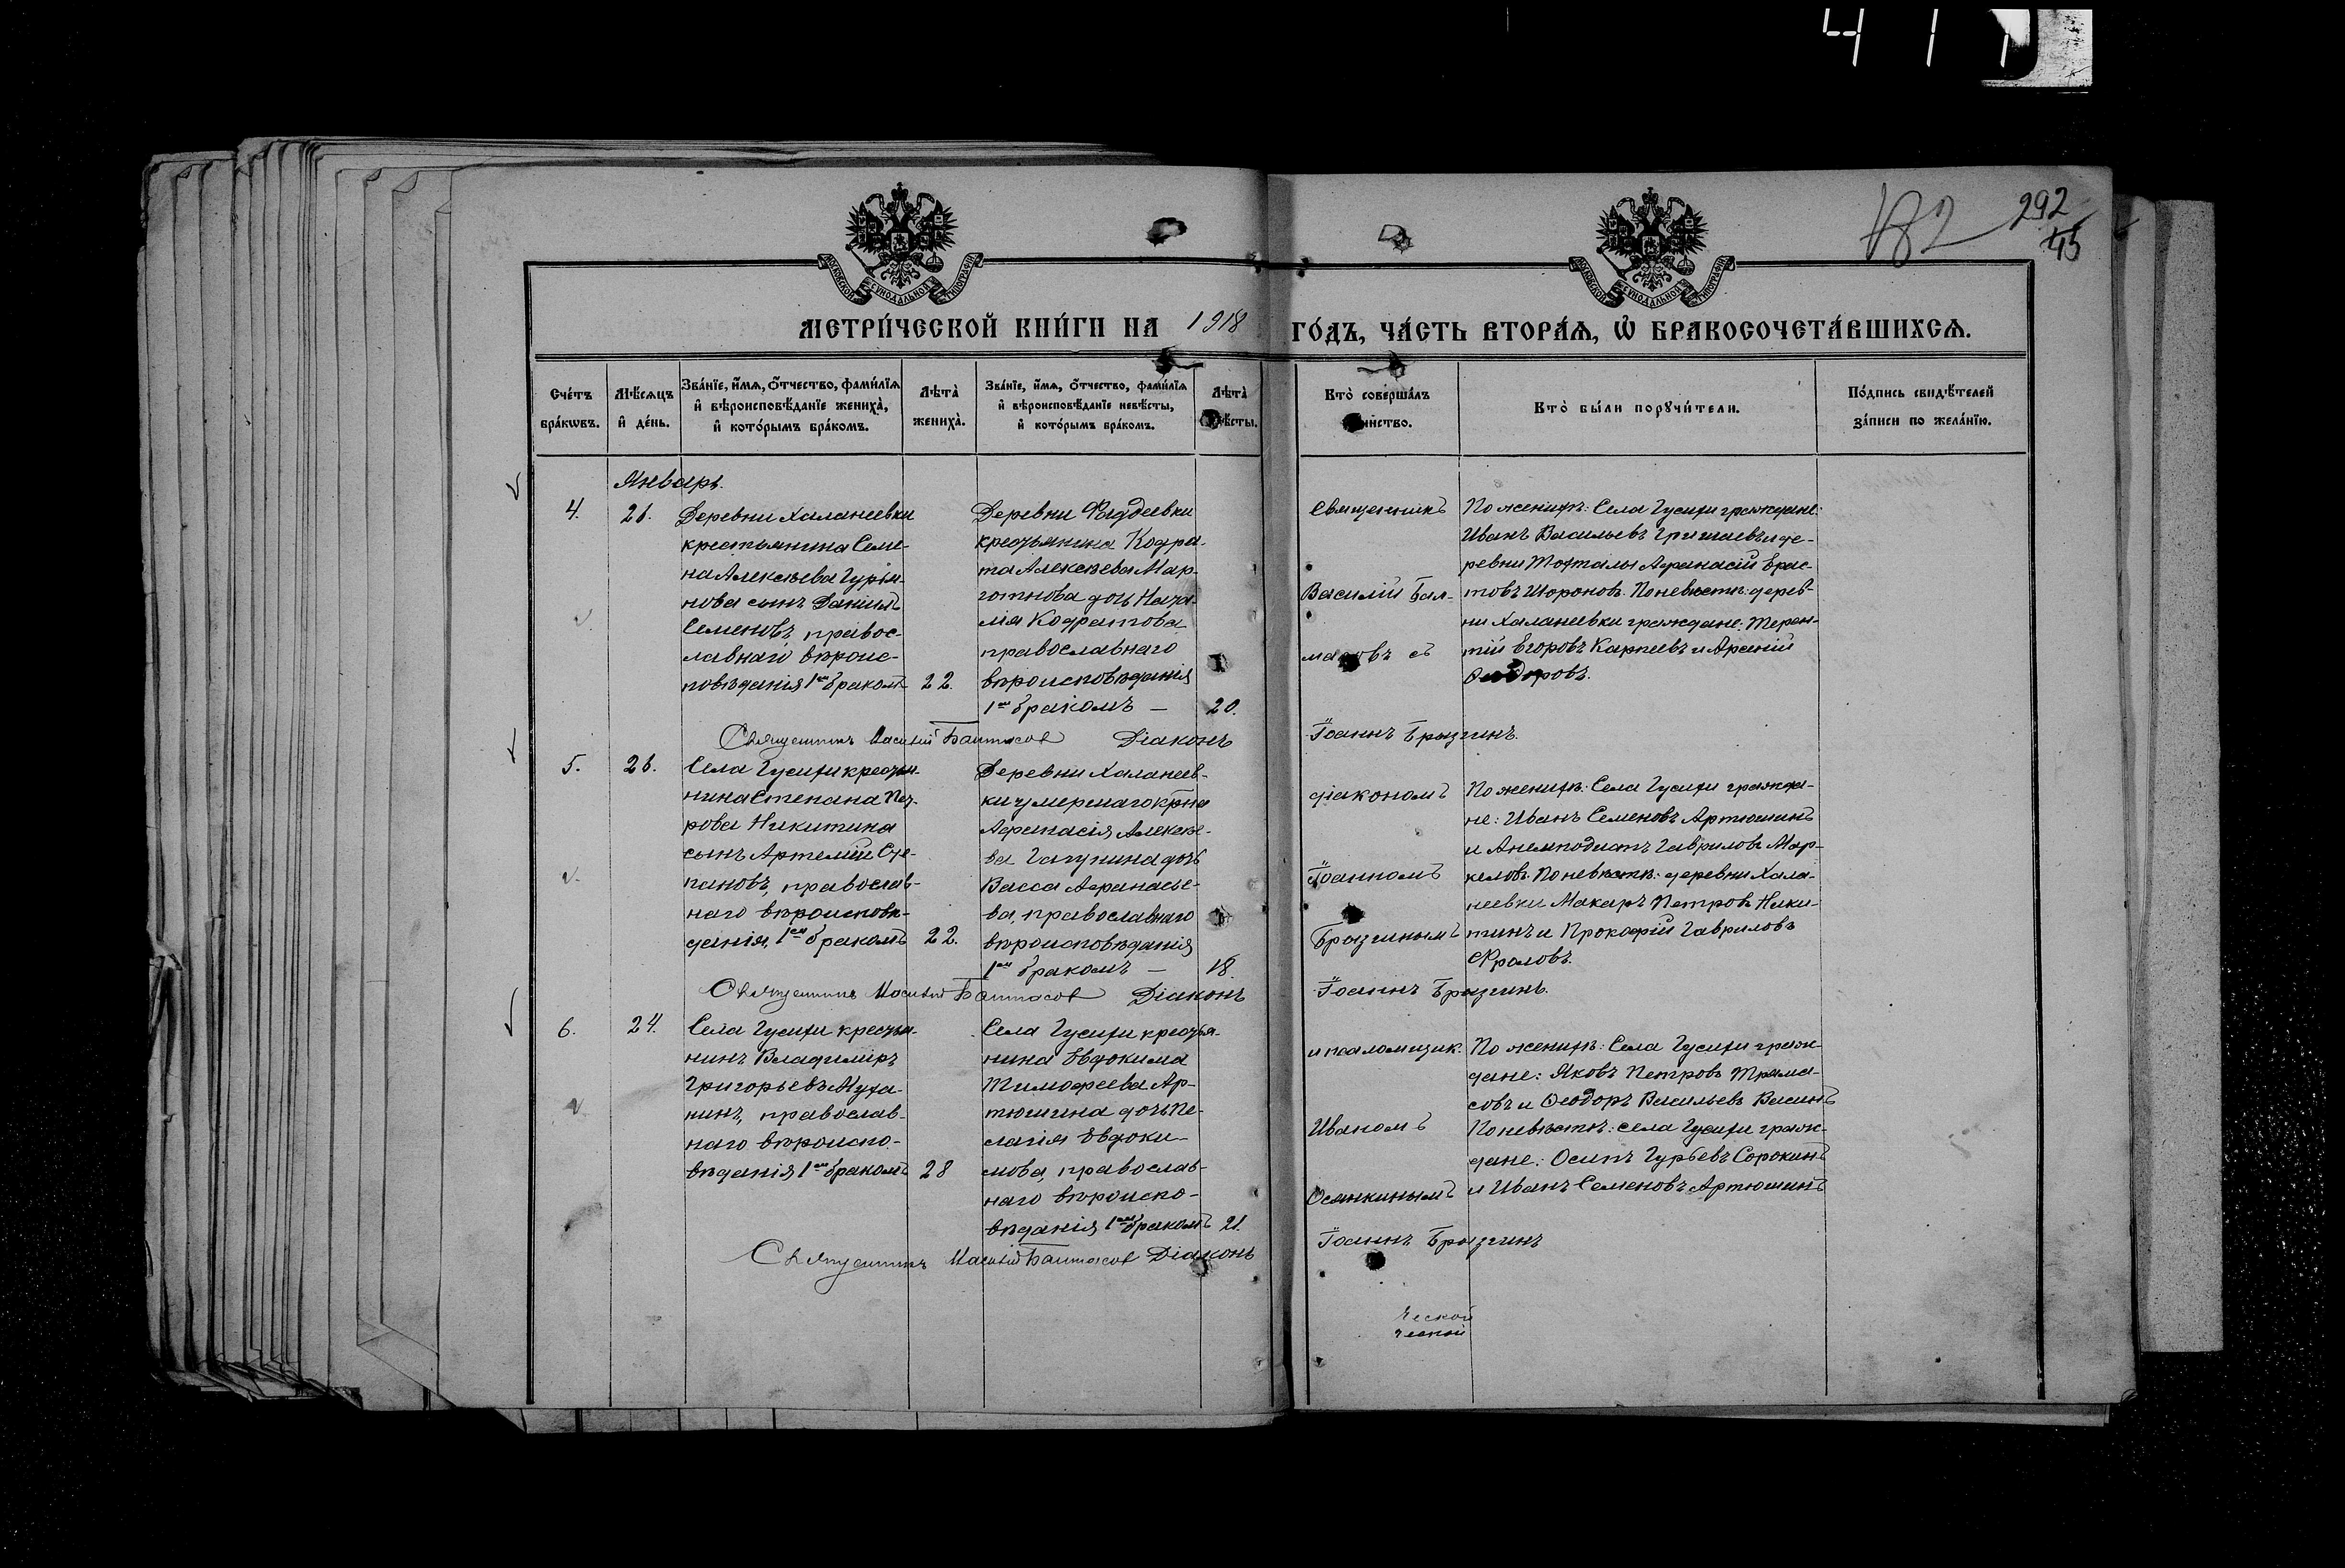 411
182 292
45
МОСКОВСКОЙ СУНОДАЛЬНОЙ ТИПОГРАФІИ
МОСКОВСКОЙ СУНОДАЛЬНОЙ ТИПОГРАФІИ
МЕТРИ́ЧЕСКОЙ КНИ́ГИ НА 1918 ГО́ДЪ, ЧА́СТЬ ВТОРА́Ѧ, Ѡ҆ БРАКОСОЧЕТА́ВШИХСѦ.
Сче́тъ бра́кѡвъ.
Мѣ́сѧцъ и҆ де́нь.
Зва́нїе, и҆́мѧ, ѻ҆́тчество, фами́лїѧ и҆ вѣроисповѣ́данїе жениха̀, и҆ кото́рымъ бра́комъ.
Лѣта̀ жениха̀.
Зва́нїе, и҆́мѧ, ѻ҆́тчество, фами́лїѧ и҆ вѣроисповѣ́данїе невѣ́сты, и҆ кото́рымъ бра́комъ.
Лѣта̀ невѣ́сты.
Кто̀ соверша́лъ таи́нство.
Кто̀ бы́ли порꙋчи́тели.
По́дпись свидѣ́телей за́писи по жела́нїю.
Январь.
4. 26.
Деревни Халанеевки
крестьянина Семе-
на Алексѣева Гурья-
нова сынъ Даніилъ
Семеновъ, правос-
лавнаго вѣроис-
повѣданія 1ᵐ бракомъ 22.
Деревни Фаддеевки
крестьянина Кодра-
та Алексѣева Мар-
дочь
Кодратова
православнаго
вѣроисповѣданія
1ᵐ бракомъ — 20.
Священникъ
Василій Бал-
масовъ съ
По женихѣ: Села Гусихи граждане:
Иванъ Васильевъ Гришаевъ и де-
ревни Аѳанасій
По невѣстѣ: дерев-
ни Халанеевки граждане: Терен-
тій Егоровъ Карпеевъ и Арсеній
Священникъ Василій Балмасов Діаконъ Іоаннъ Брызгинъ.
5. 26.
Села Гусихи крестья-
нина Степана Пет-
рова Никитина
сынъ Артемій Сте-
пановъ, православ-
наго вѣроисповѣ-
данія, 1ᵐ бракомъ 22.
Деревни Халанеев-
ки умершаго кр̃на
Аѳанасія Алексѣе-
ва дочь
Васса Аѳанасье-
ва, православнаго
вѣроисповѣданія
1ᵐ бракомъ — 18.
діакономъ
Іоанномъ
Брызгинымъ
По женихѣ: Села Гусихи гражда-
не: Иванъ Семеновъ Артюшинъ
и Анемподистъ Гавриловъ Мар-
келовъ. По невѣстѣ: деревни Хала-
неевки Макаръ Петровъ Ники-
тинъ и Прокофій Гавриловъ
Фроловъ.
Священникъ Василій Балмасов Діаконъ Іоаннъ Брызгинъ.
6. 24.
Села Гусихи крестья-
нинъ Владиміръ
Григорьевъ Муха-
нинъ, православ-
наго вѣроиспо-
вѣданія 1ᵐ бракомъ 28
Села Гусихи крестья-
нина Евдокима
Тимофеева Ар-
тюшина дочь Пе-
лагія Евдоки-
мова, православ-
наго вѣроиспо-
вѣданія 1ᵐ бракомъ 21.
и псаломщик.
Иваномъ
Осянкинымъ
По женихѣ: Села Гусихи граж-
дане: Яковъ Петровъ Трама-
совъ и Ѳеодоръ Васильевъ Васинъ
По невѣстѣ: села Гусихи граж-
дане: Осипъ Гурьевъ Сорокинъ
и Иванъ Семеновъ Артюшинъ
Священникъ Василій Балмасов Діаконъ Іоаннъ Брызгинъ
ческой
ческой